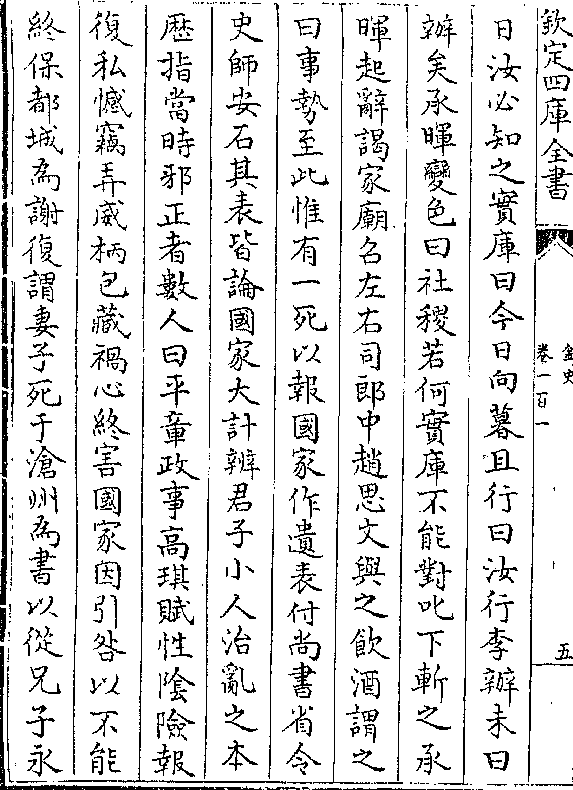 欽定四庫全書
金史
卷一百一
五
日汝必知之實庫曰今日向暮且行曰汝行李辦未曰
辦矣承暉變色曰社稷若何實庫不能對叱下斬之承
暉起辭謁家廟召左右司郎中趙思文與之飲酒謂之
曰事勢至此惟有一死以報國家作遺表付尚書省令
史師安石其表皆論國家大計辨君子小人治亂之本
歷指當時邪正者數人曰平章政事高琪賦性隂險報
復私憾竊弄威柄包藏禍心終害國家因引咎以不能
終保都城為謝復謂妻子死于滄州為書以從兄子永